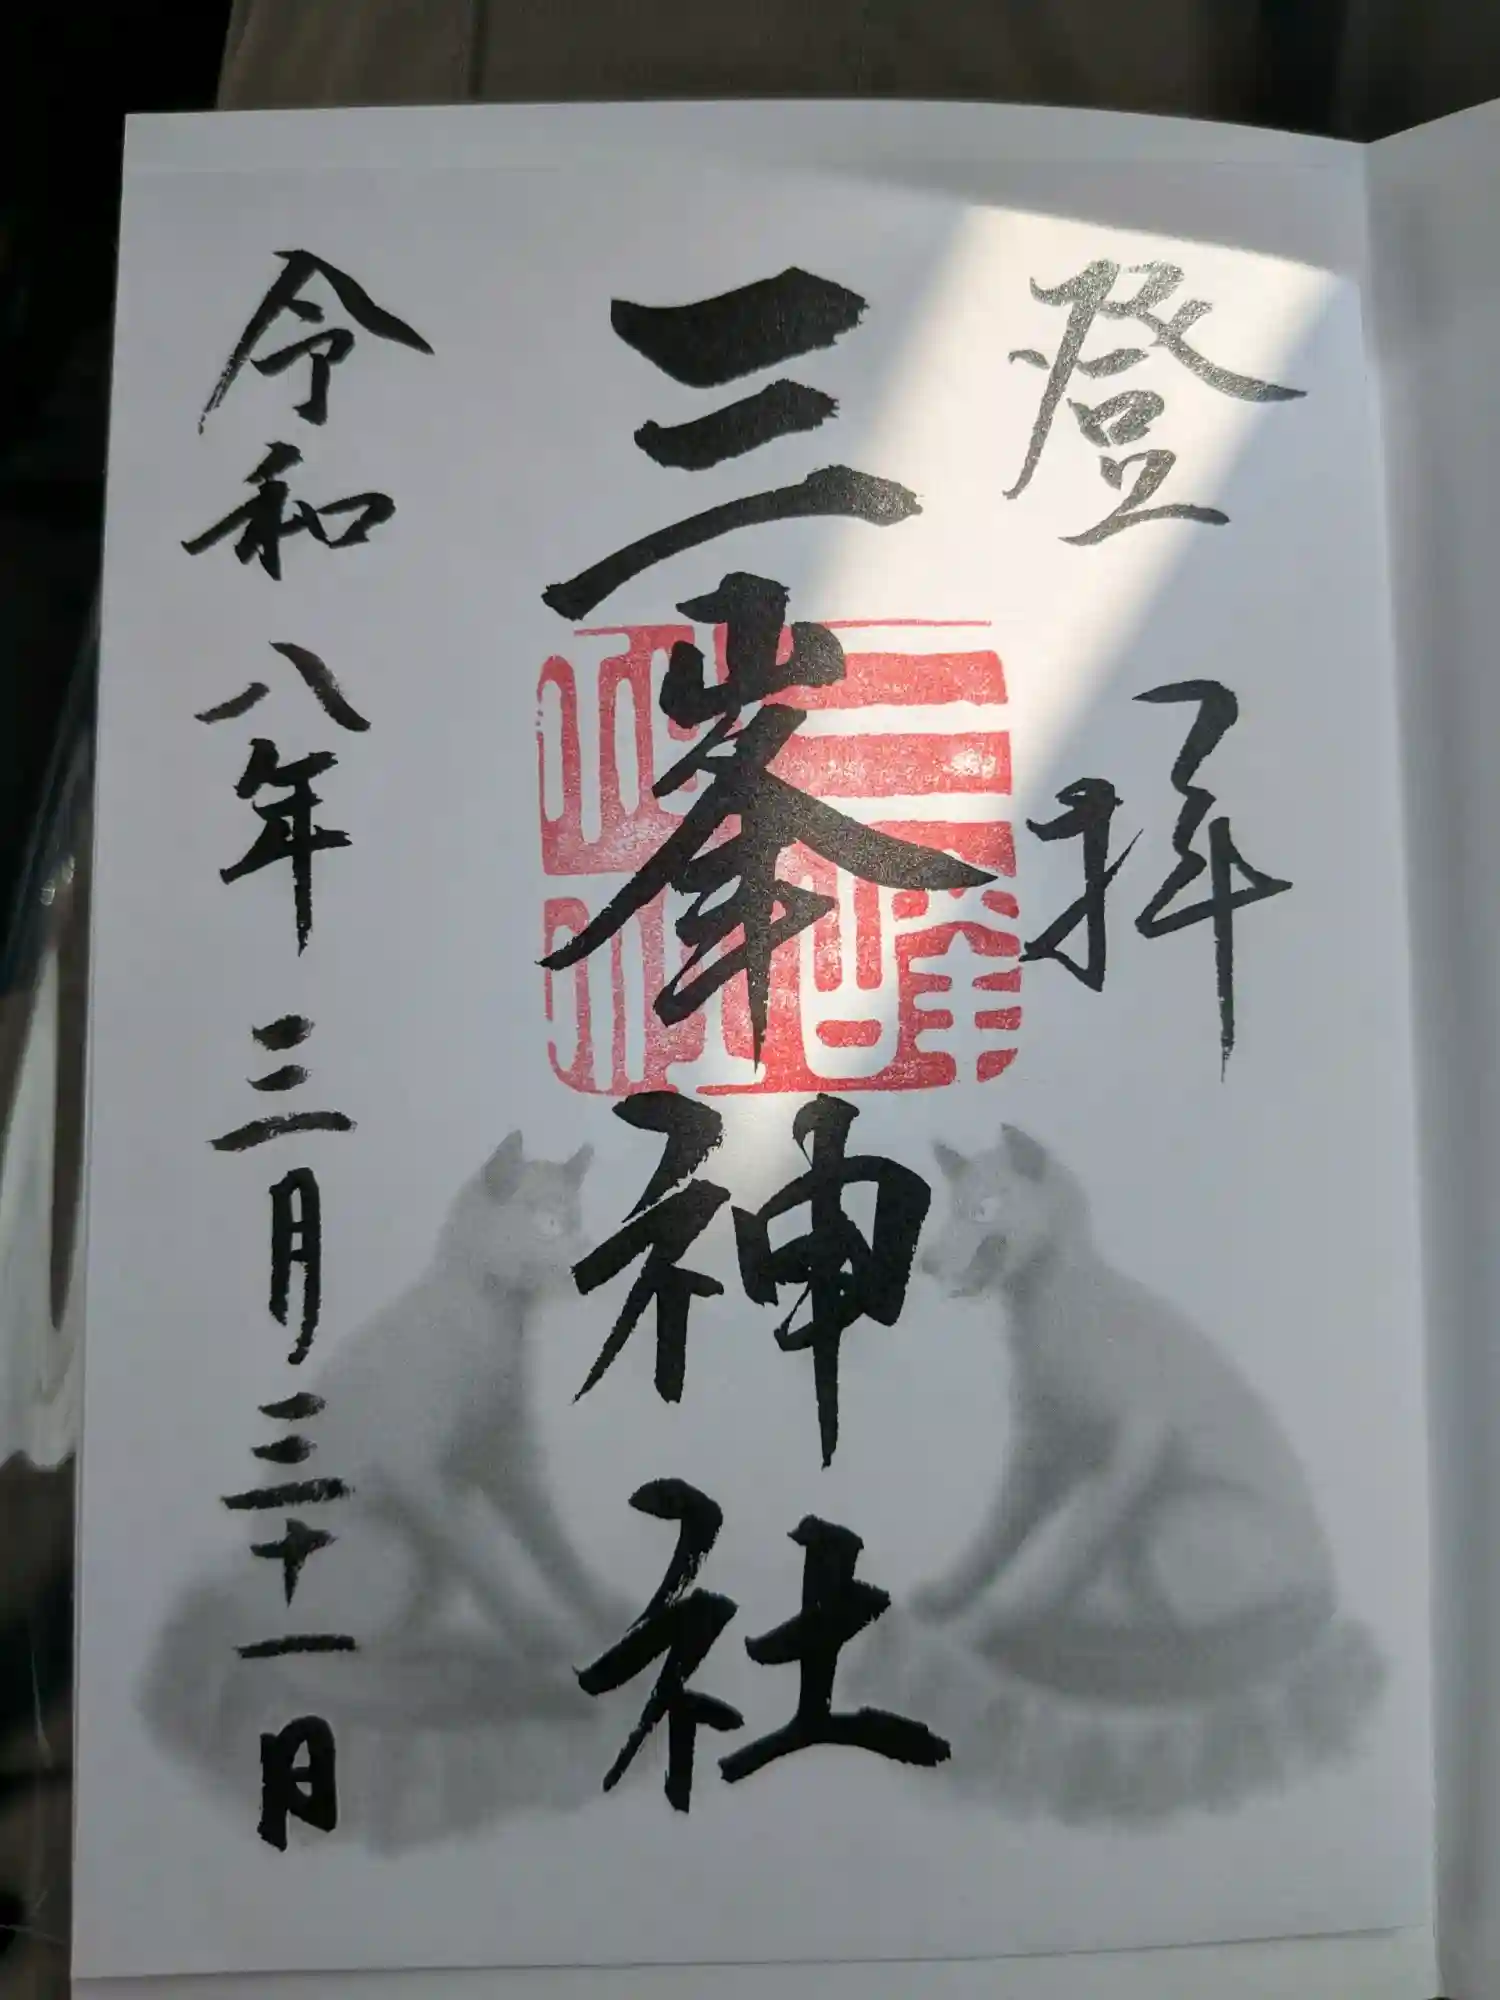 登拝
三峯神社
三峯神社
令和八年三月三十一日